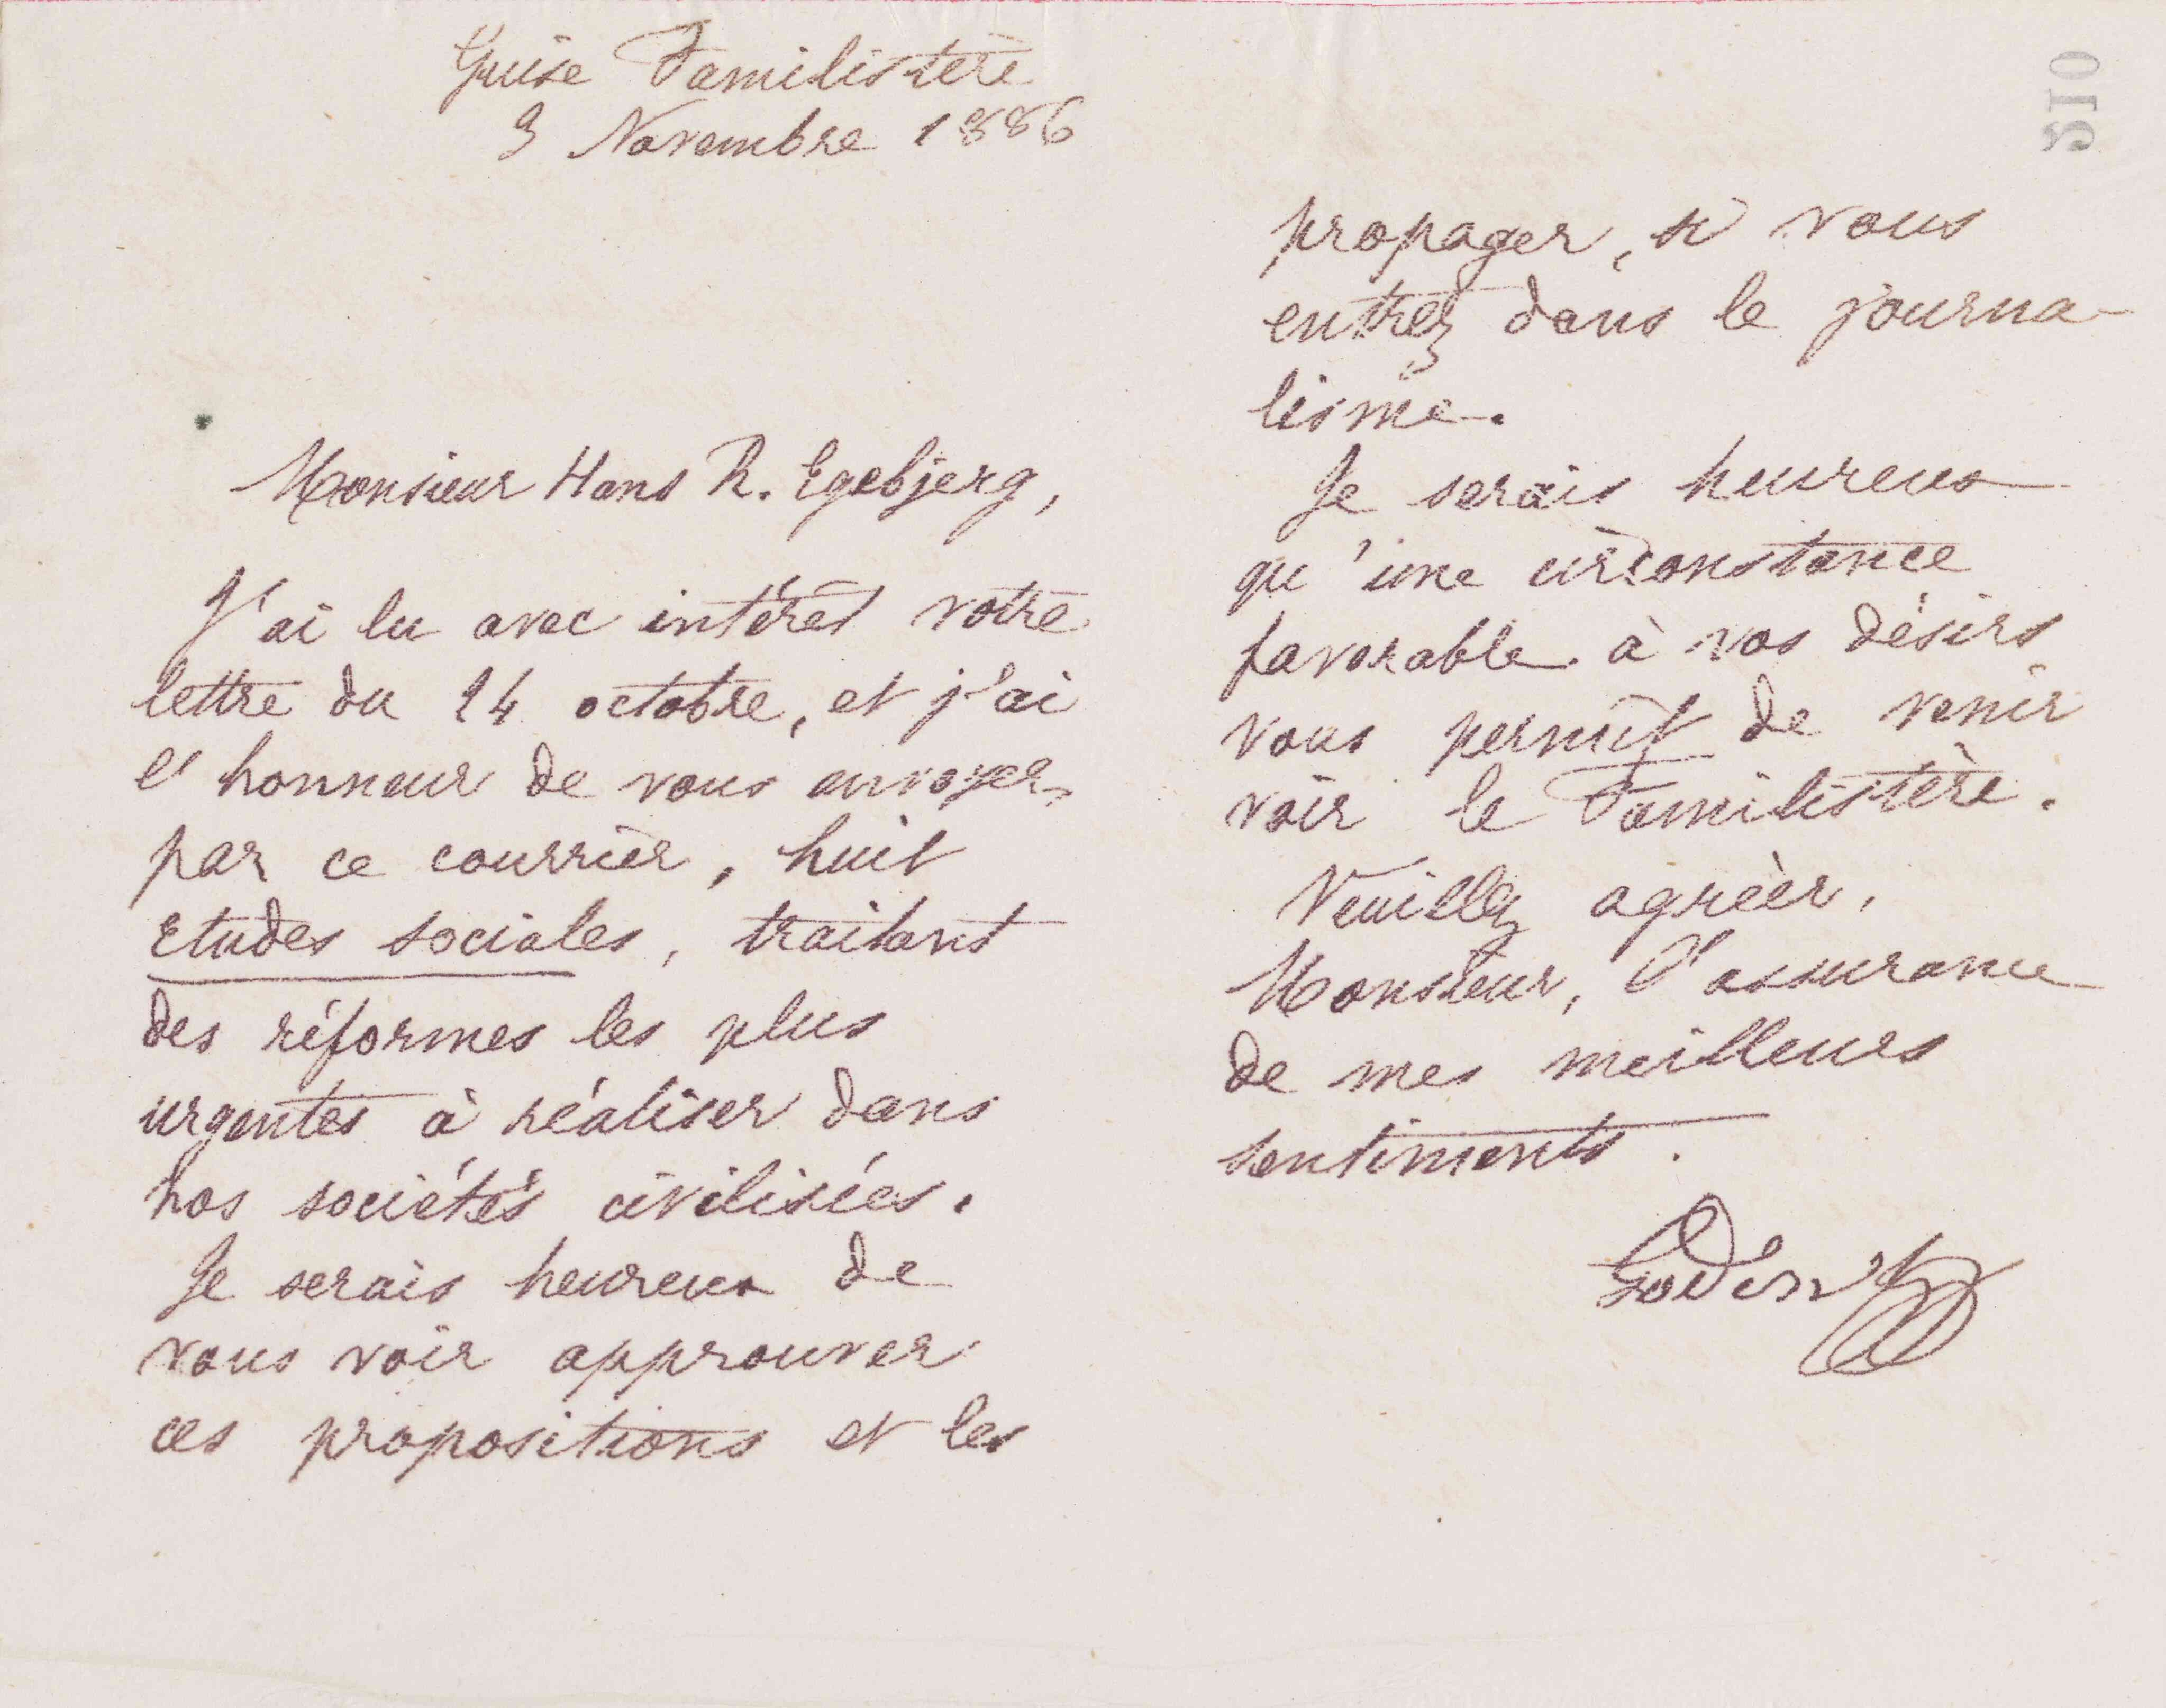 Guise Familistère
3 Novembre 1886
Monsieur Hans R. Egebjerg,
J'ai lu avec intérêt votre
lettre du 24 octobre, et j'ai
l'honneur de vous envoyer,
par ce courrier, huit
Etudes sociales, traitant
des réformes les plus
urgentes à réaliser dans
nos sociétés civilisées.
Je serais heureux de
vous voir approuver
ces propositions et les
510
propager, si vous
entrez dans le journa-
lisme.
Je serais heureux
qu'une circonstance
favorable à vos désirs
vous permît de venir
voir le Familistère.
Veuillez agréer,
Monsieur, l'assurance
de mes meilleurs
sentiments.
Godin